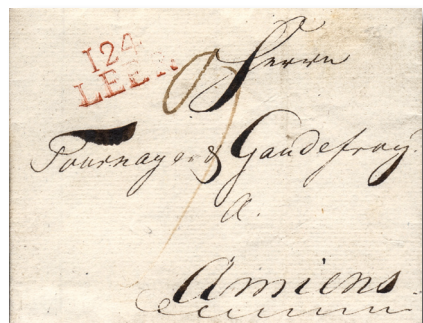 124
LEER
Herrn
Tournayer & Gaudefroy
a.
Amiens